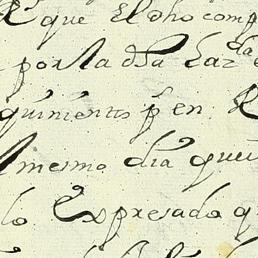 que El dho comp
por la dha Haz da
quinientos ps en
mismo dia que
lo Expresado q